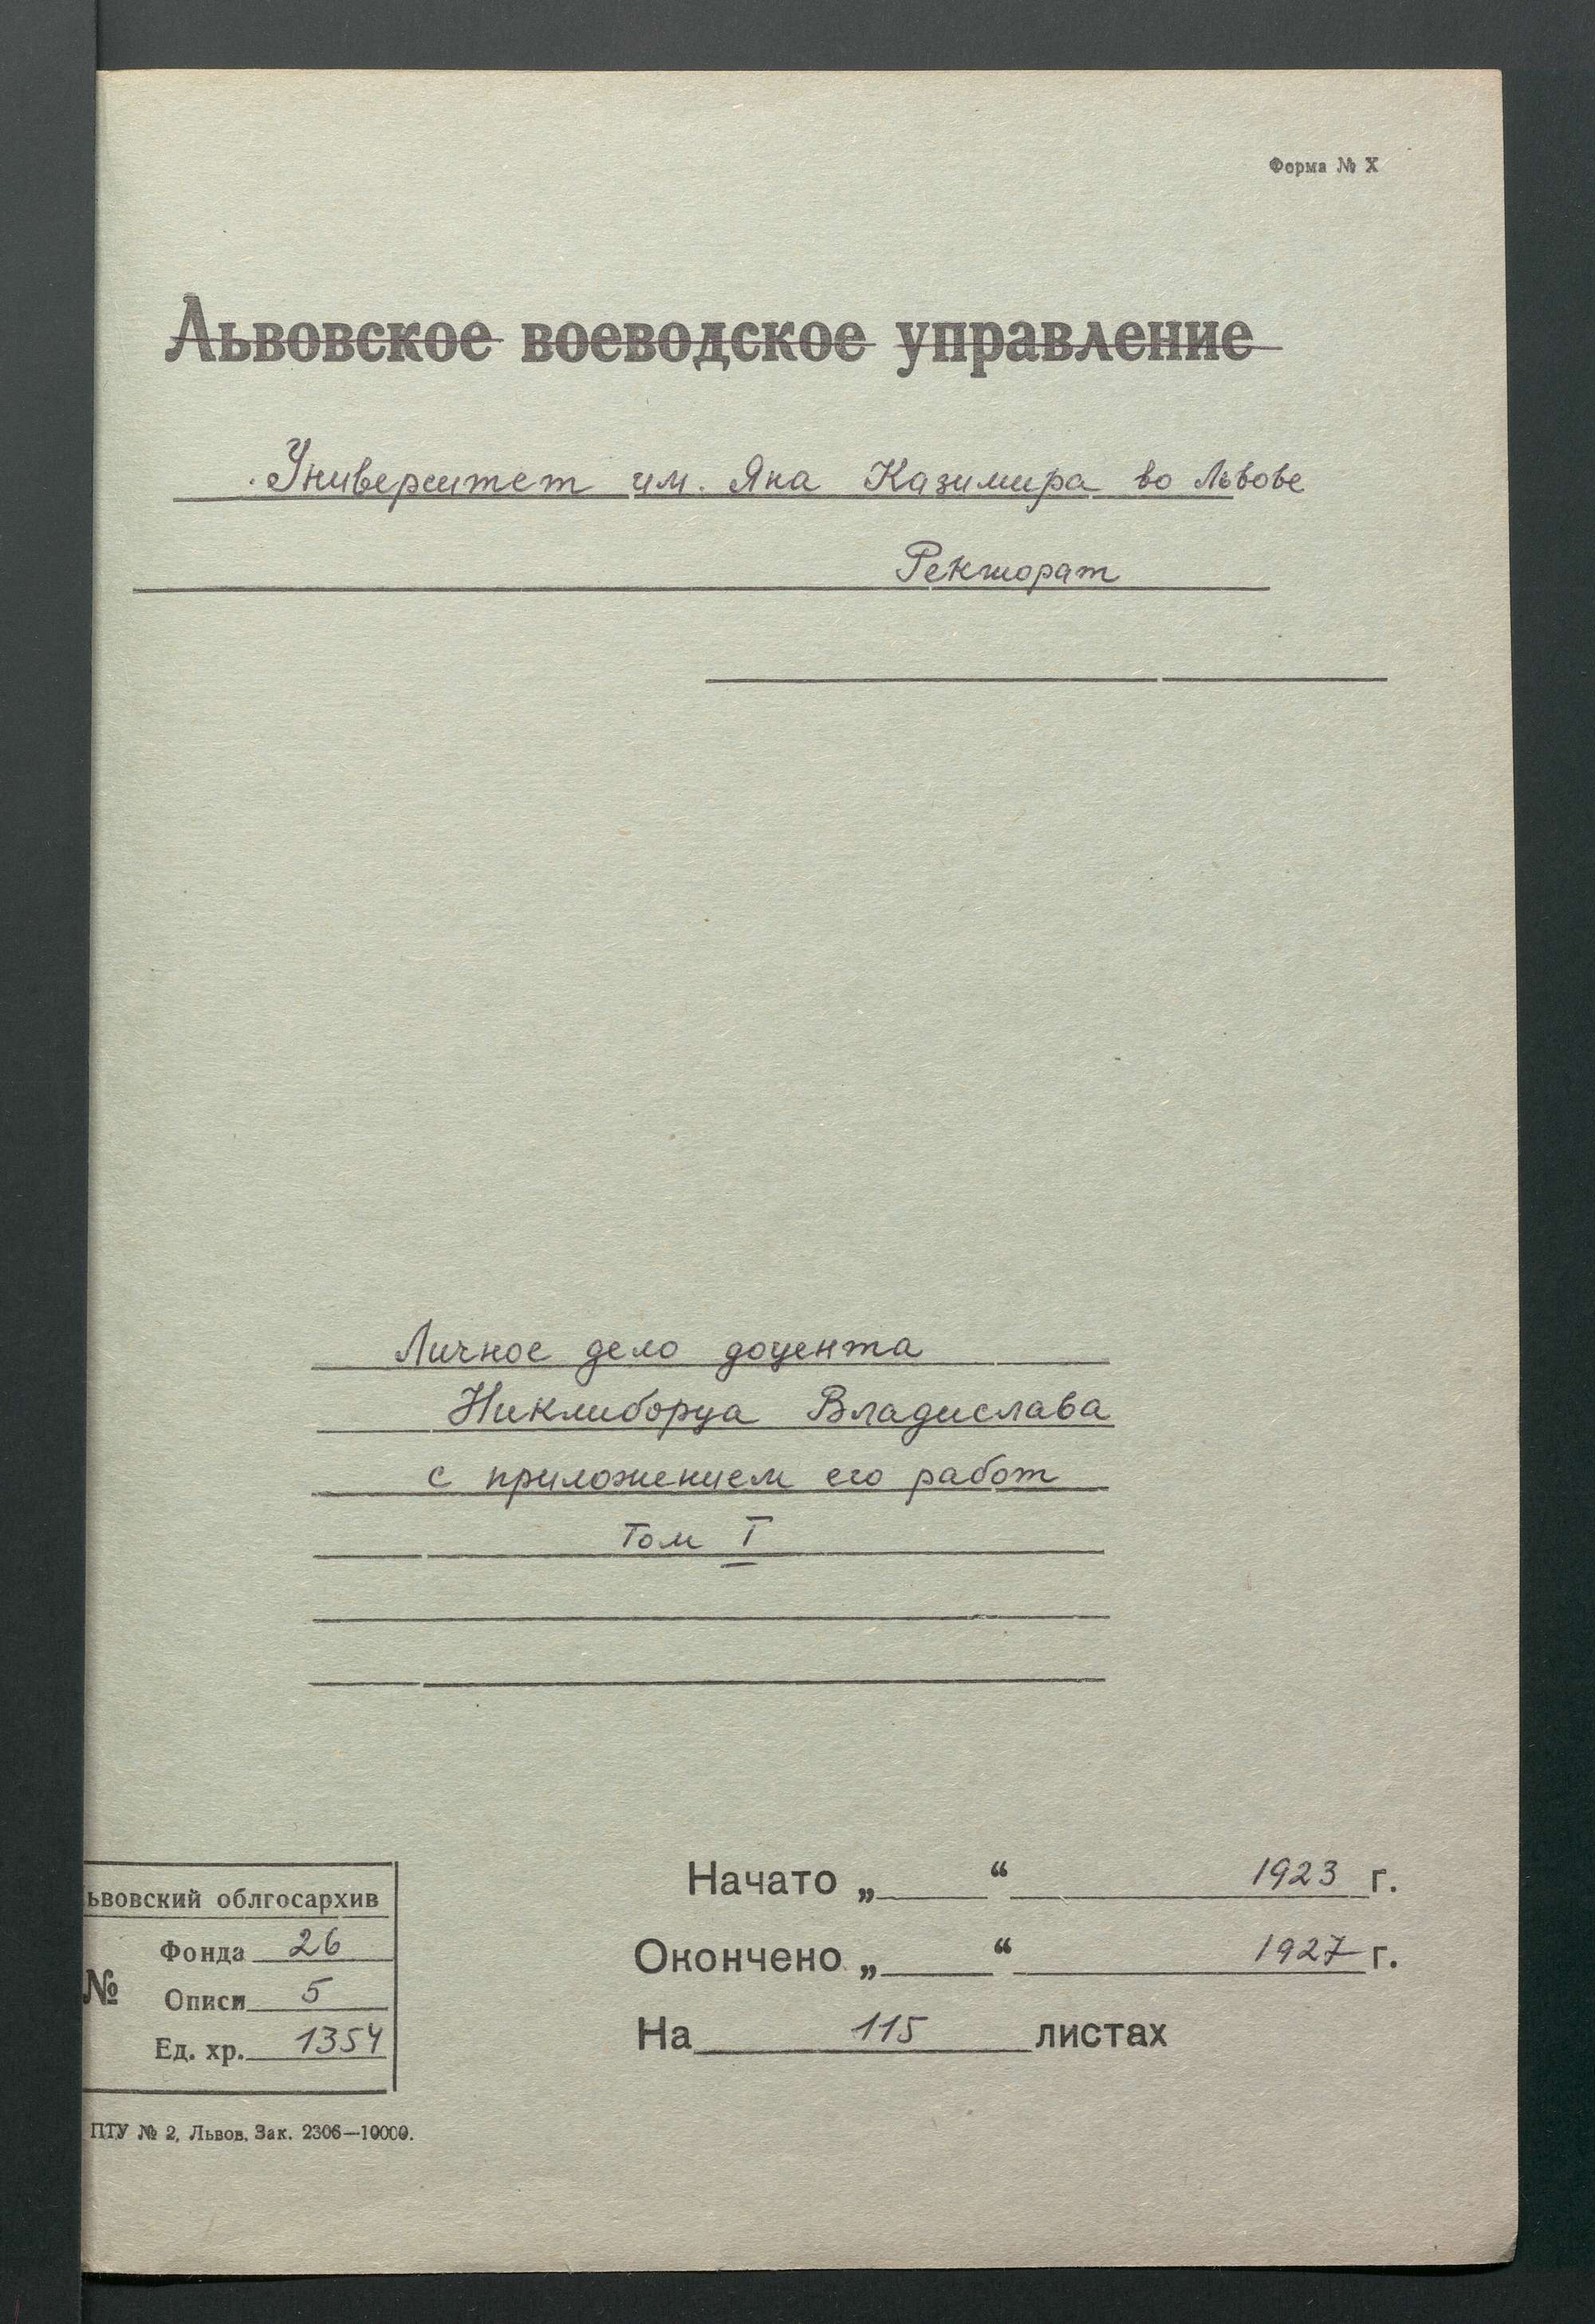 Форма № X
Львовское воеводское управление
Университет им. Яна Казимира во Львове
Ректорат
Личное дело доцента
Никлиборца Владислава
с приложением его работ
Том I
Начато „ “ 1923 г.
Окончено „ “ 1927 г.
На 115 листах
ьвовский облгосархив
Фонда 26
№ Описи 5
Ед. хр. 1354
ПТУ № 2, Львов. Зак. 2306—10000.